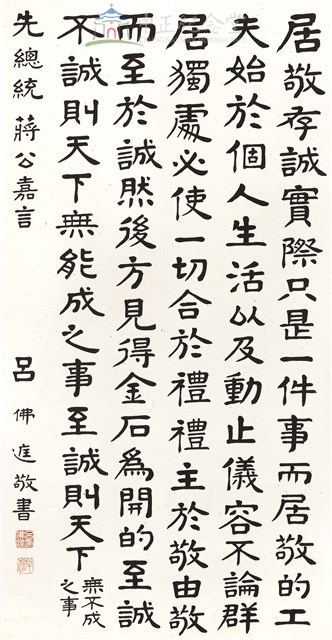 居敬存誠實際只是一件事而居敬的工
夫始於個人生活以及動止儀容不論群
居獨處必使一切合於禮禮主於敬由敬
而至於誠然後方見得金石爲開的至誠
不誠則天下無能成之事至誠則天下無不成之事
先總統 蔣公嘉言 呂佛庭敬書